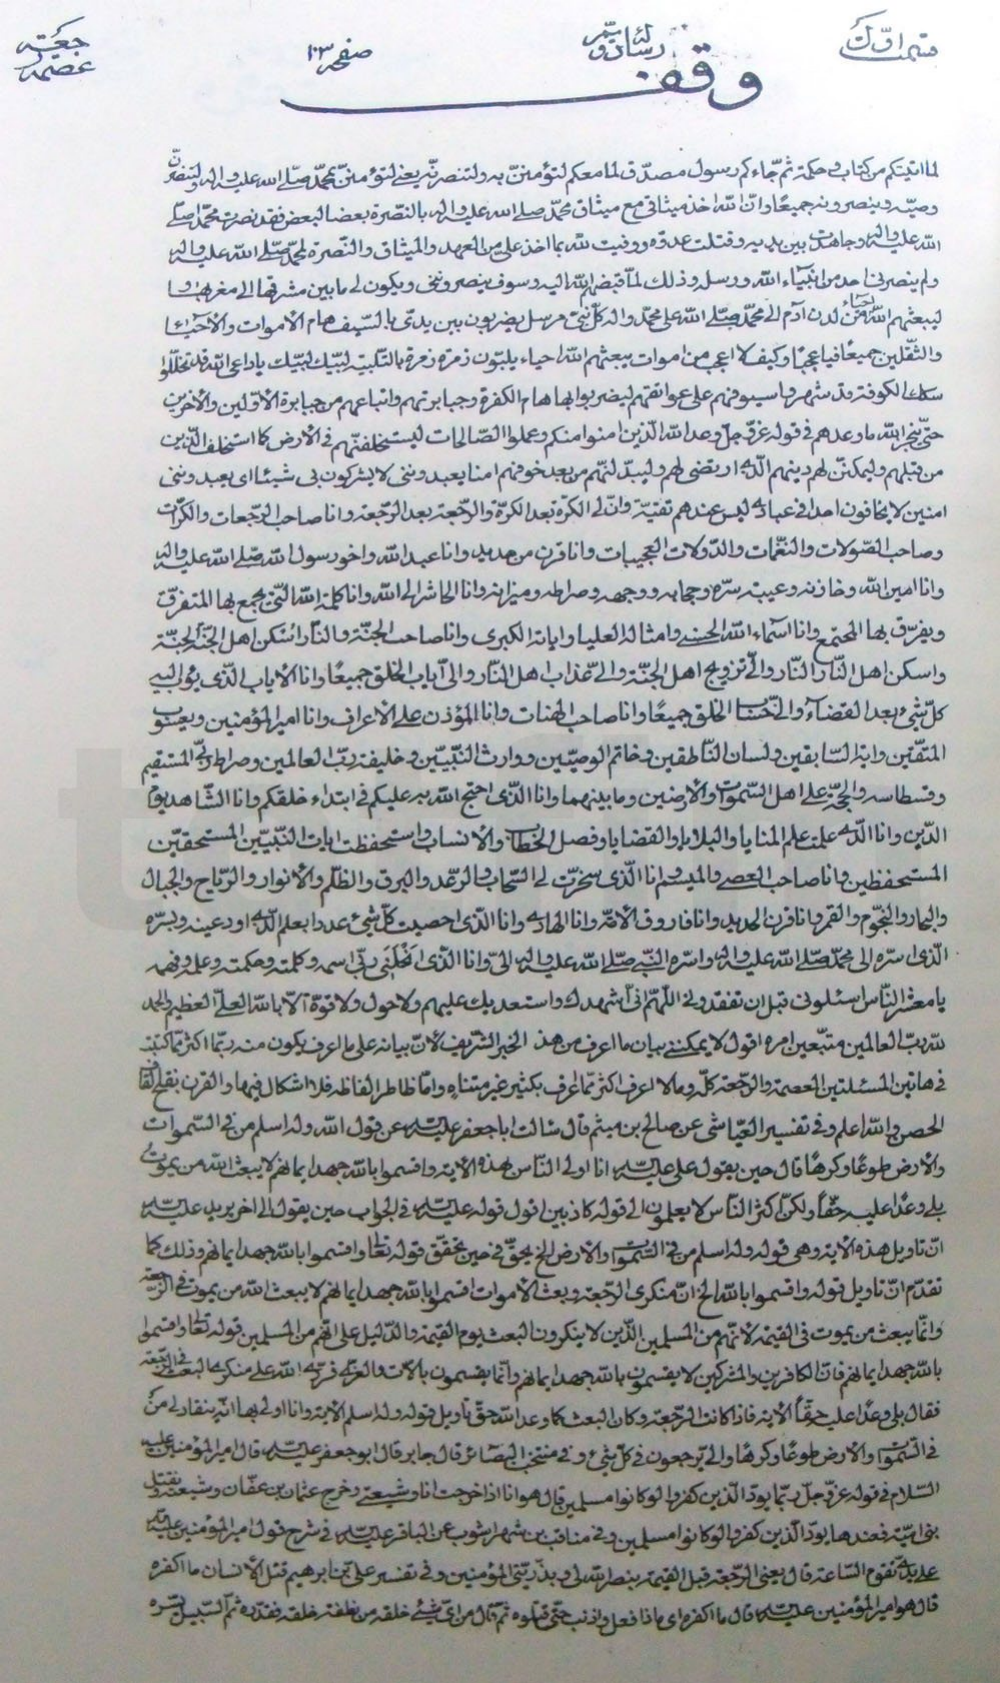 قسمت اول
رسالهٔ
صفحه ١٠٣
رجعت
عصمة و
وقف
لما اتيتكم من كتاب وحكمة ثم جاءكم رسول مصدق لما معكم لتؤمنن به ولتنصرنه يعني لتؤمنن بمحمد صلى الله عليه واله ولتنصرن
وصيه وينصرونه جميعا وان الله اخذ ميثاقي مع ميثاق محمد صلى الله عليه واله بالنصرة بعضنا لبعض فقد نصرت محمدا صلى
الله عليه واله وجاهدت بين يديه وقتلت عدوه ووفيت لله بما اخذ علي من العهد والميثاق والنصرة لمحمد صلى الله عليه واله
ولم ينصرني احد من انبياء الله ورسله وذلك لما قبضهم الله اليه وسوف ينصرونني ويكون لي ما بين مشرقها الى مغربها و
ليبعثهم الله احياء من لدن ادم الى محمد صلى الله على محمد واله كل نبي مرسل يضربون بين يدي بالسيف هام الاموات والاحياء
والثقلين جميعا فيا عجبا وكيف لا اعجب من اموات يبعثهم الله احياء يلبون زمرة زمرة بالتلبية لبيك لبيك يا داعي الله قد تخللوا
سكك الكوفة وقد شهروا سيوفهم على عواتقهم ليضربوا بها هام الكفرة وجبابرتهم واتباعهم من جبابرة الاولين والاخرين
حتى ينجز الله ما وعدهم في قوله عز وجل وعد الله الذين امنوا منكم وعملوا الصالحات ليستخلفنهم في الارض كما استخلف الذين
من قبلهم وليمكنن لهم دينهم الذي ارتضى لهم وليبدلنهم من بعد خوفهم امنا يعبدونني لا يشركون بي شيئا اي يعبدونني
امنين لا يخافون احدا في عبادتي ليس عندهم تقية وان لي الكرة بعد الكرة والرجعة بعد الرجعة وانا صاحب الرجعات والكرات
وصاحب الصولات والنقمات والدولات العجيبات وانا قرن من حديد وانا عبد الله واخو رسول الله صلى الله عليه واله
وانا امين الله وخازنه وعيبة سره وحجابه ووجهه وصراطه وميزانه وانا الحاشر الى الله وانا كلمة الله التي يجمع بها المتفرق
ويفرق بها المجتمع وانا اسماء الله الحسنى وامثاله العليا واياته الكبرى وانا صاحب الجنة والنار اسكن اهل الجنة الجنة
واسكن اهل النار النار والي تزويج اهل الجنة والي عذاب اهل النار والي اياب الخلق جميعا وانا الاياب الذي يؤب اليه
كل شئ بعد القضاء والي حساب الخلق جميعا وانا صاحب الهنات وانا المؤذن على الاعراف وانا امير المؤمنين ويعسوب
المتقين واية السابقين ولسان الناطقين وخاتم الوصيين ووارث النبيين وخليفة رب العالمين وصراط ربي المستقيم
وقسطاسه والحجة على اهل السموات والارضين وما بينهما وانا الذي احتج الله به عليكم في ابتداء خلقكم وانا الشاهد يوم
الدين وانا الذي علمت علم المنايا والبلايا والقضايا وفصل الخطاب والانساب واستحفظت ايات النبيين المستحقين
المستحفظين وانا صاحب العصى والميسم وانا الذي سخرت لي السحاب والرعد والبرق والظلم والانوار والرياح والجبال
والبحار والنجوم والقمر وانا قرن الحديد وانا فاروق الامة وانا الهادي وانا الذي احصيت كل شئ عددا بعلم الذي اودعنيه وبسره
الذي اسره الى محمد صلى الله عليه واله واسره النبي صلى الله عليه واله الي وانا الذي انحلني ربي اسمه وكلمته وحكمته وعلمه وفهمه
يا معشر الناس اسئلوني قبل ان تفقدوني اللهم اني اشهدك واستعديك عليهم ولا حول ولا قوة الا بالله العلي العظيم والحمد
لله رب العالمين متبعين امره اقول لا يمكنني بيان ما اعرف من هذا الخبر الشريف لان بيانه على ما اعرف يكون منه ربما اكثر مما كتبت
في هاتين المسئلتين العصمة والرجعة كله وما لا اعرف اكثر مما اعرف بكثير غير متناه واما ظاهر الفاظه فلا اشكال فيها والقرن بفتح القاف
الحصن والله اعلم وفي تفسير العياشي عن صالح بن ميثم قال سالت ابا جعفر عليه السلام عن قول الله وله اسلم من في السموات
والارض طوعا وكرها قال حين يقول علي عليه السلام انا اولى الناس بهذه الاية واقسموا بالله جهد ايمانهم لا يبعث الله من يموت
بلى وعدا عليه حقا ولكن اكثر الناس لا يعلمون الى قوله كاذبين اقول قوله عليه السلام في الجواب حين يقول الى اخر يريد عليه السلام
ان تاويل هذه الاية وهي قوله وله اسلم من في السموات والارض الخ يحق في حين تحقق قوله تعالى واقسموا بالله جهد ايمانهم وذلك كما
تقدم ان تاويل قوله واقسموا بالله الخ ان منكري الرجعة وبعث الاموات اقسموا بالله جهد ايمانهم لا يبعث الله من يموت في الرجعة
وانما يبعث من يموت في القيمة لانهم من المسلمين الذين لا ينكرون البعث يوم القيمة والدليل على انهم من المسلمين قوله تعالى واقسموا
بالله جهد ايمانهم فان الكافرين والمشركين لا يقسمون بالله جهد ايمانهم وانما يقسمون باللات والعزى فرد الله على منكري البعث في الرجعة
فقال بلى وعدا عليه حقا الاية فاذا كانت الرجعة وكان البعث كما وعد الله حق تاويل قوله وله اسلم الاية وانا اولى بها انه ينقاد لي من
في السموات والارض طوعا وكرها والي يرجعون في كل شئ وفي منتخب البصائر قال جابر قال ابو جعفر عليه السلام قال امير المؤمنين عليه
السلام في قوله عز وجل ربما يود الذين كفروا لو كانوا مسلمين قال هو انا اذا خرجت انا وشيعتي وخرج عثمان بن عفان وشيعته ونقتل
بني امية فعندها يود الذين كفروا لو كانوا مسلمين وفي مناقب بن شهراشوب عن الباقر عليه السلام في شرح قول امير المؤمنين عليه السلام
على يدي تقوم الساعة قال يعني الرجعة قبل القيمة ينصر الله بي وبذريتي المؤمنين وفي تفسير علي بن ابرهيم قتل الانسان ما اكفره
قال هو امير المؤمنين عليه السلام قال ما اكفره اي ماذا فعل واذنب حتى قتلوه ثم قال من اي شئ خلقه من نطفة خلقه فقدره ثم السبيل يسره